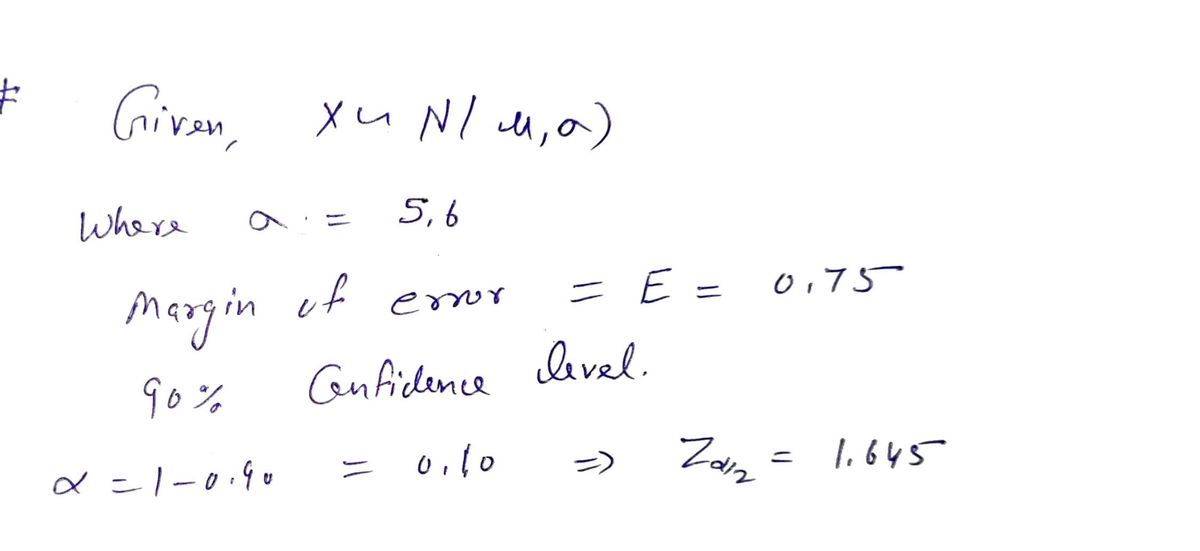 # Given, X ~ N( μ, σ)
Where σ = 5.6
Margin of error = E = 0.75
90% Confidence level.
α = 1-0.90 = 0.10 => Zα/2 = 1.645